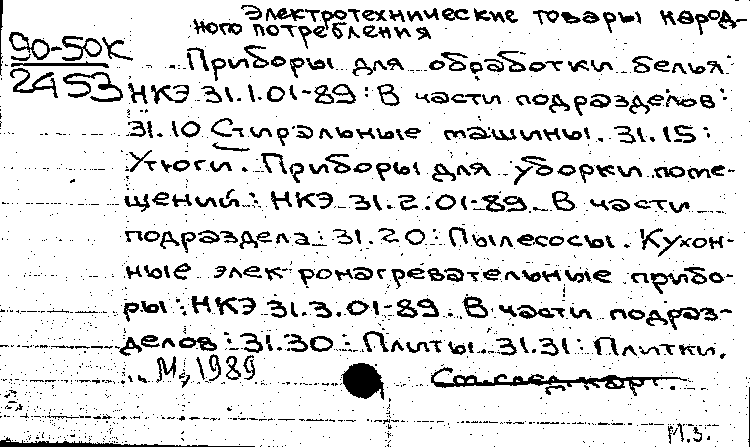 Электротехнические товары народ-
ного потребления
90-50К
2453
Приборы для обработки белья:
НКЭ 31.1.01-89: В части подразделов:
31.10 Стиральные машины. 31.15:
Утюги. Приборы для уборки поме-
щений: НКЭ 31.2.01-89. В части
подраздела: 31.20: Пылесосы. Кухон-
ные электронагревательные прибо-
ры: НКЭ 31.3.01-89. В части подраз-
делов: 31.30: Плиты. 31.31: Плитки.
М., 1989
См. след. карт.
М.З.